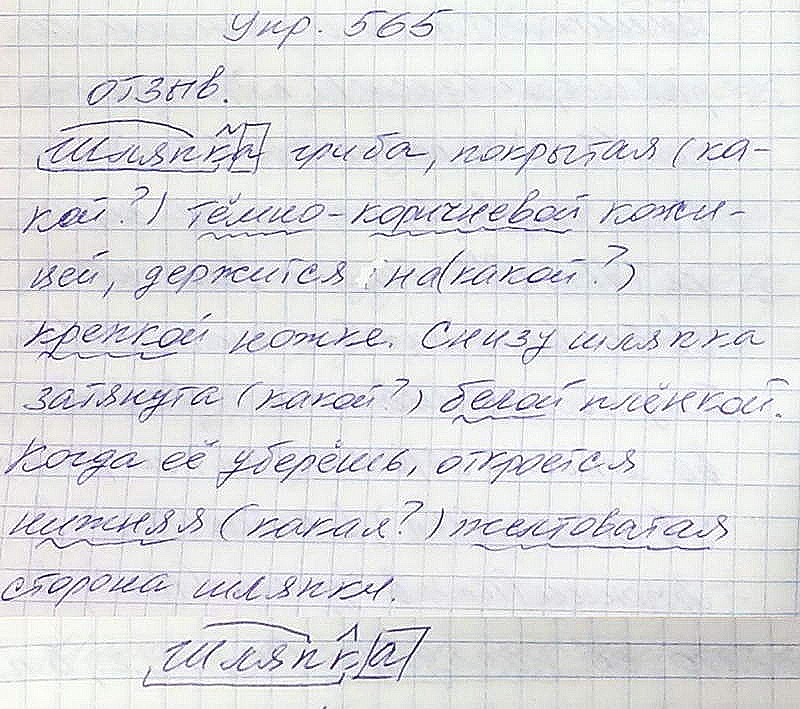 Упр. 565
отзыв.
Шляпка гриба, покрытая (ка-
кой?) тёмно-коричневой кожи-
цей, держится на (какой?)
крепкой ножке. Снизу шляпка
затянута (какой?) белой плёнкой.
Когда её уберёшь, откроется
нижняя (какая?) желтоватая
сторона шляпки.
Шляпка